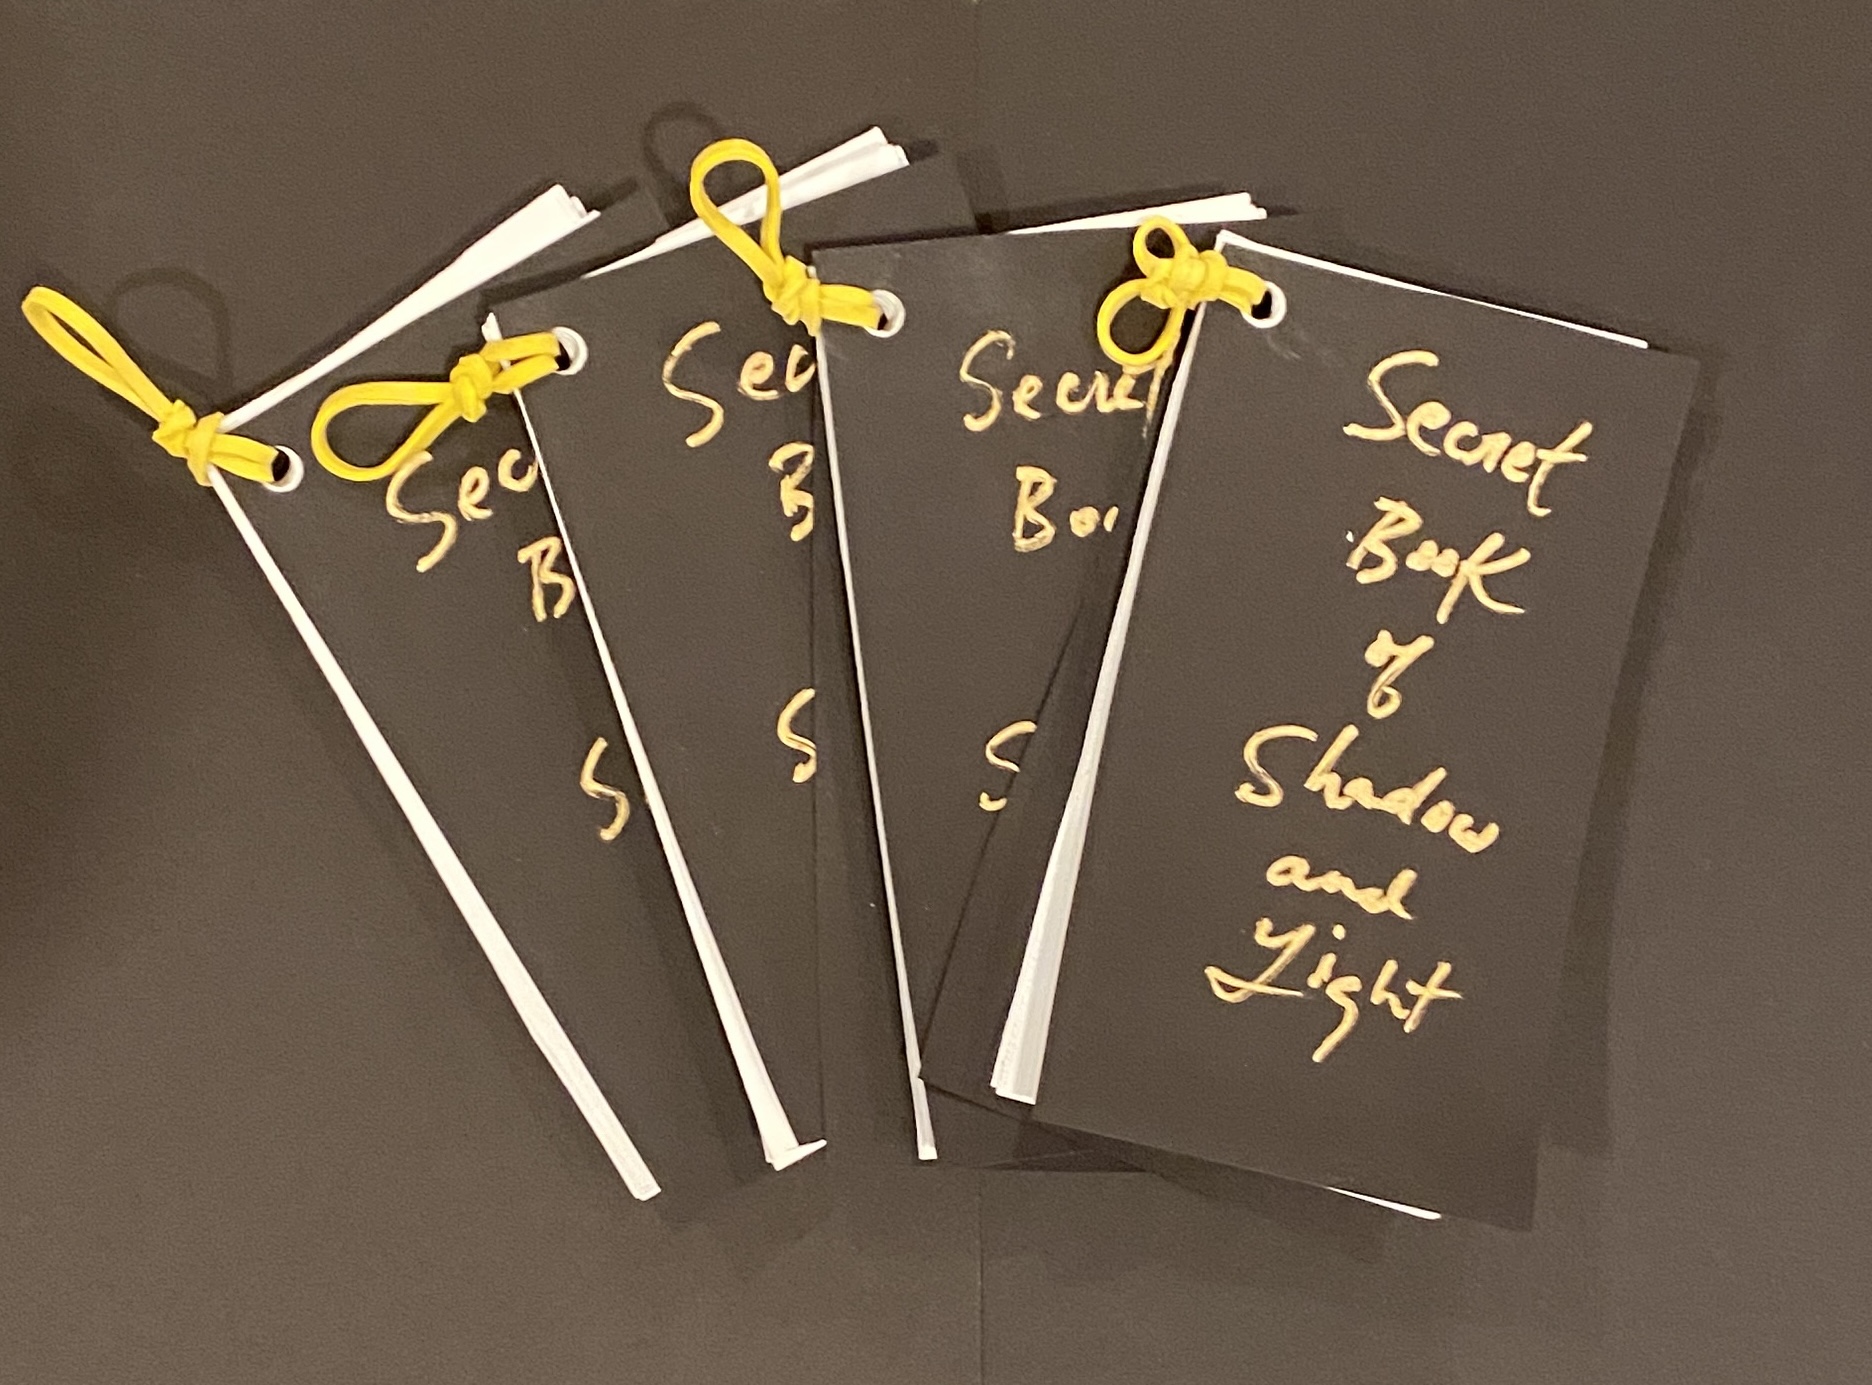 Sec
B
S
Sec
B
S
Secret
Boo
S
Secret
Book
of
Shadow
and
Light